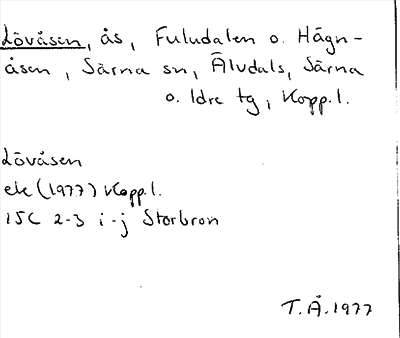 Lövåsen, ås, Fuludalen o. Hägn-
åsen, Särna sn, Älvdals, Särna
o. Idre tg, Kopp.l.
Lövåsen
ek (1977) Kopp.l.
15C 2-3 i-j Storbron
T.Å.1977